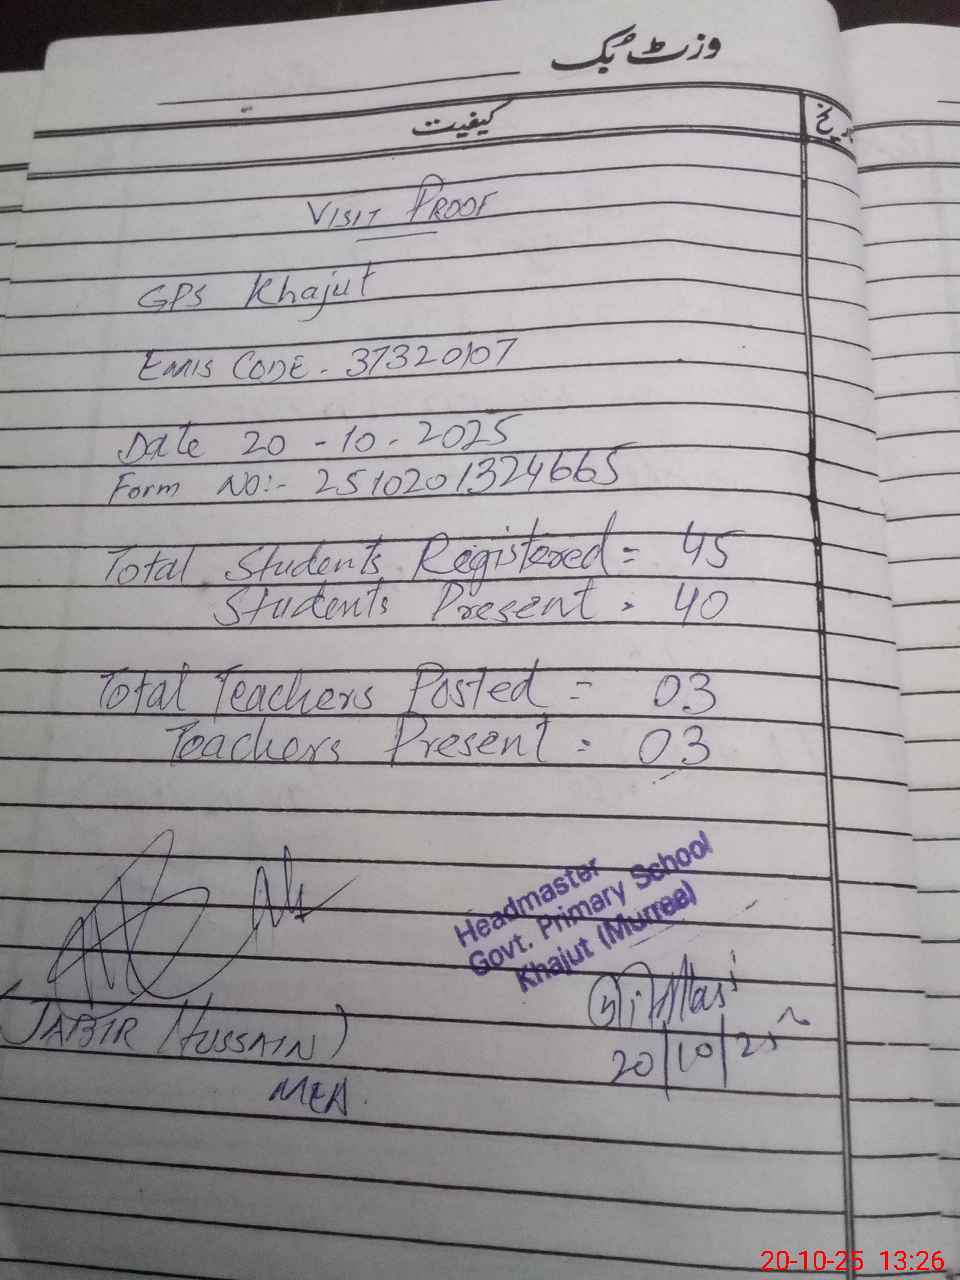 وزٹ بُک
کیفیت
تاریخ
VISIT PROOF
GPS Khajut
EMIS CODE - 37320107
Date 20 - 10 - 2025
Form NO:- 2510201324665
Total Students Registered = 45
Students Present = 40
Total Teachers Posted = 03
Teachers Present = 03
Headmaster
Govt. Primary School
Khajut (Murree)
(JABIR HUSSAIN)
20/10/25
MEA
20-10-25 13:26